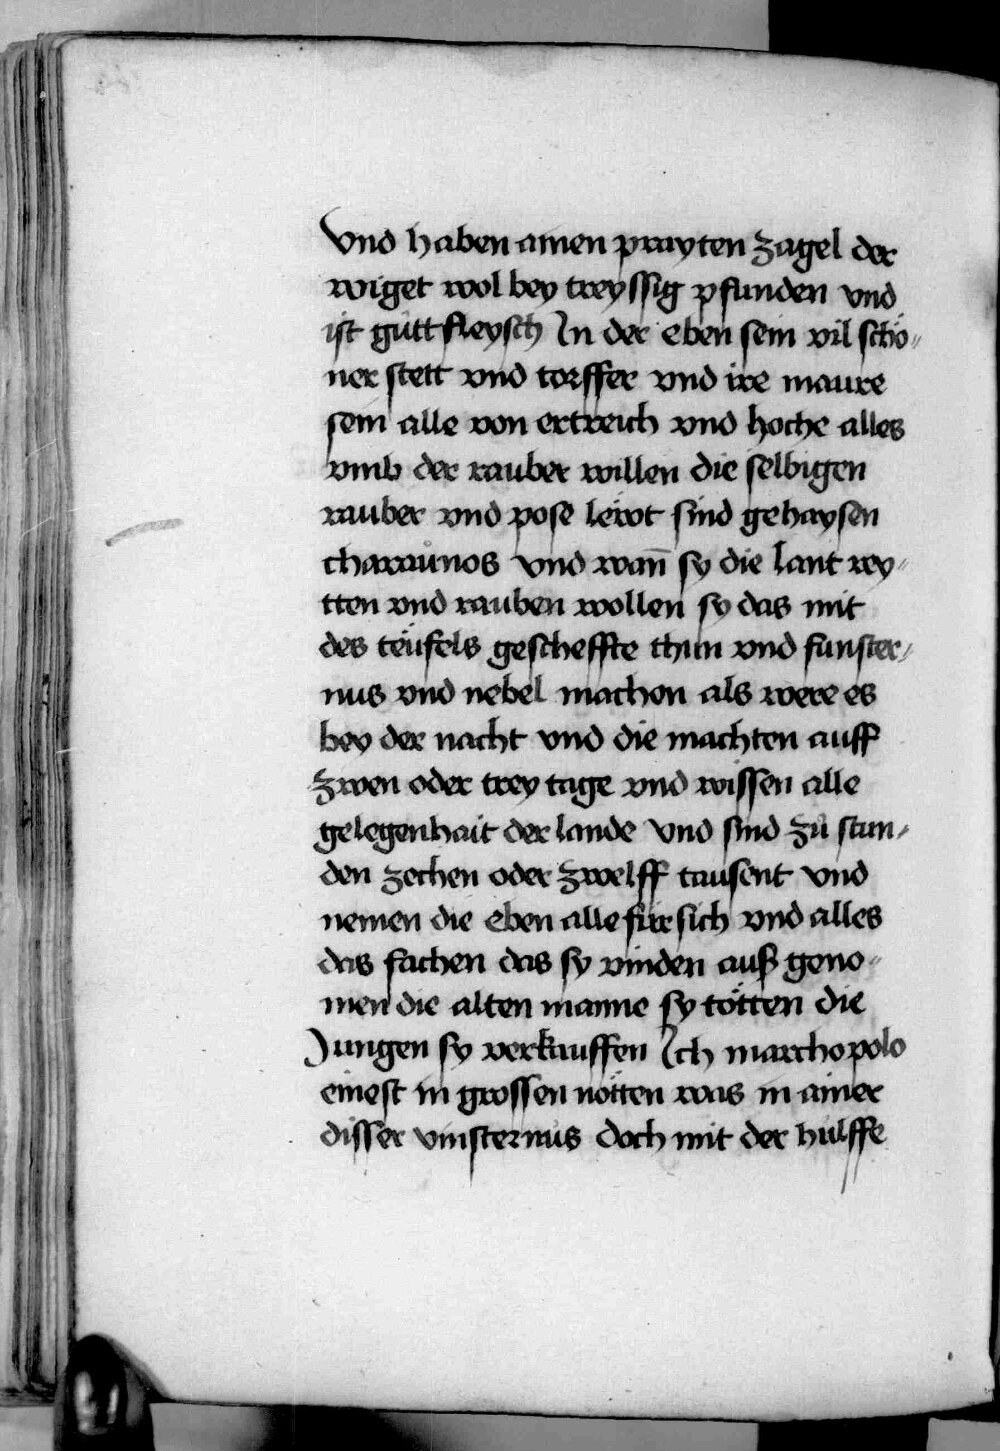 Vnd haben ainen prayten zagel der
wiget wol bey treyssig pfunden vnd
ist gůtt fleysch In der eben sein vil schö-
ner stett vnd torffer vnd ire maure
sein alle von ertreich vnd hoche alles
vmb der rauber willen die selbigen
rauber vnd pose lewt sind gehaysen
charaůnos vnd wan̄ sy die lant rey-
tten vnd rauben wollen sy das mit
des teüfels gescheffte thun vnd funster-
nus vnd nebel machen als were es
bey der nacht vnd die machten auff
zwen oder trey tage vnd wissen alle
gelegenhait der lande vnd sind zů stun-
den zechen oder zwelff tausent vnd
nemen die eben alle für sich vnd alles
das fachen das sy vinden auß geno-
men die alten manne sy tötten die
Jungen sy verkauffen Ich marcho polo
einest in grossen nötten was in ainer
disser vinsternůs doch mit der hülffe